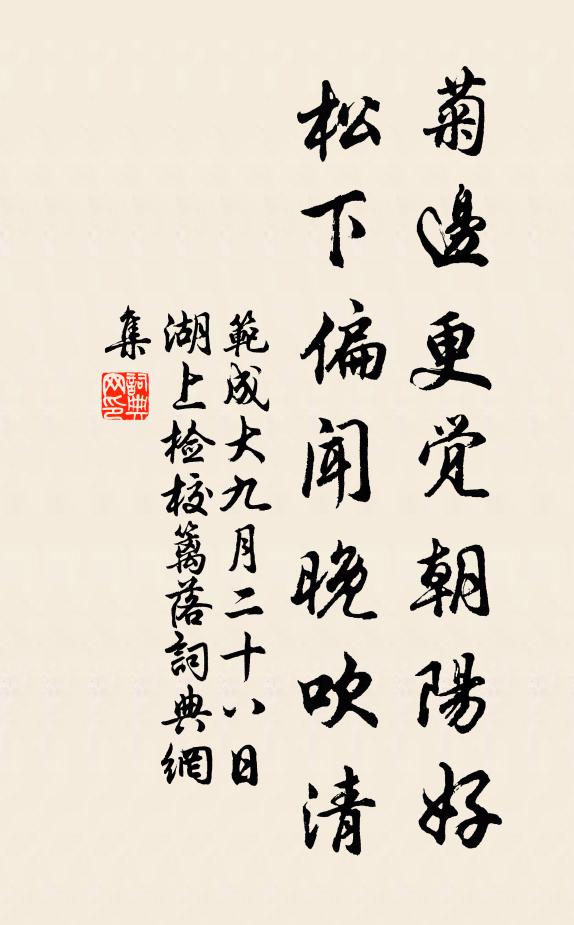 菊邊更觉朝陽好
松下偏闻晚吹清
範成大九月二十八日
湖上检校篱落詞典網
集
詞典网印